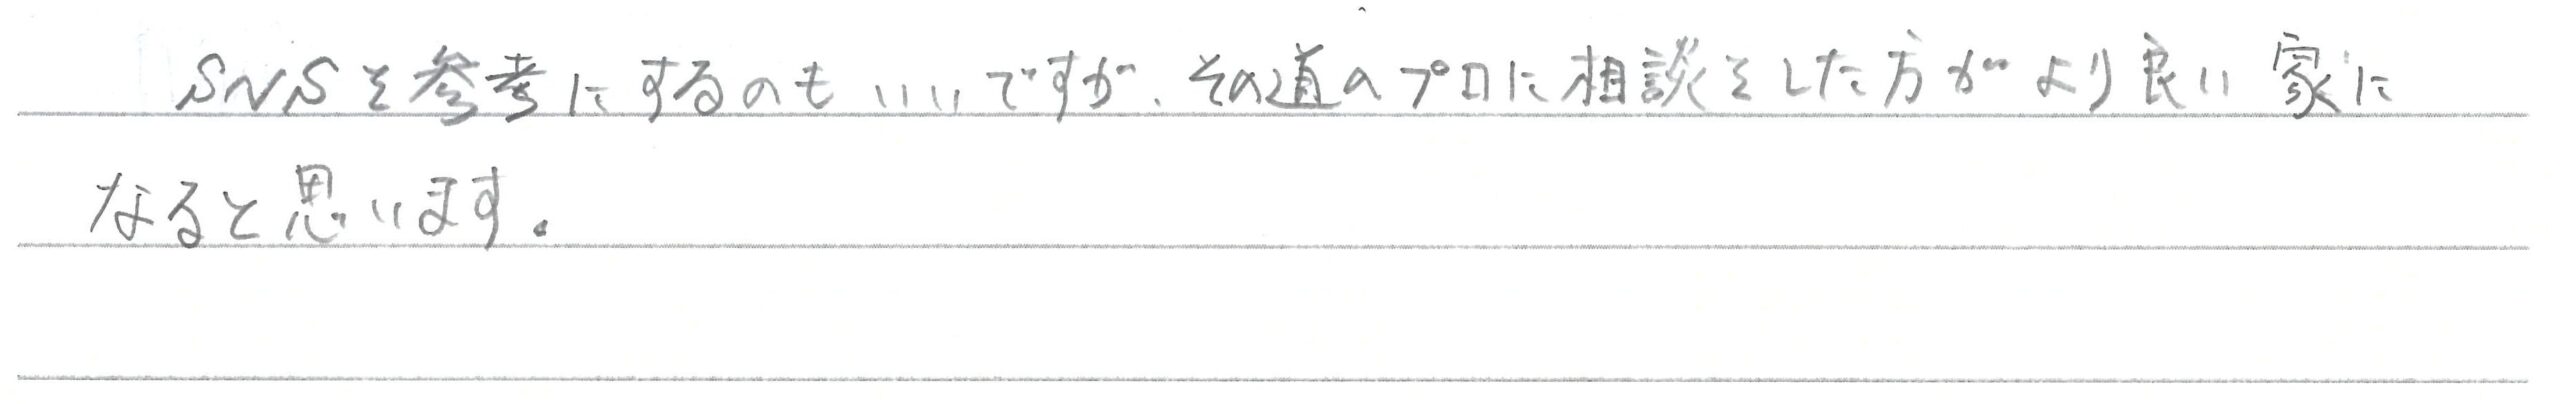 SNSを参考にするのもいいですが、その道のプロに相談をした方がより良い家に
なると思います。